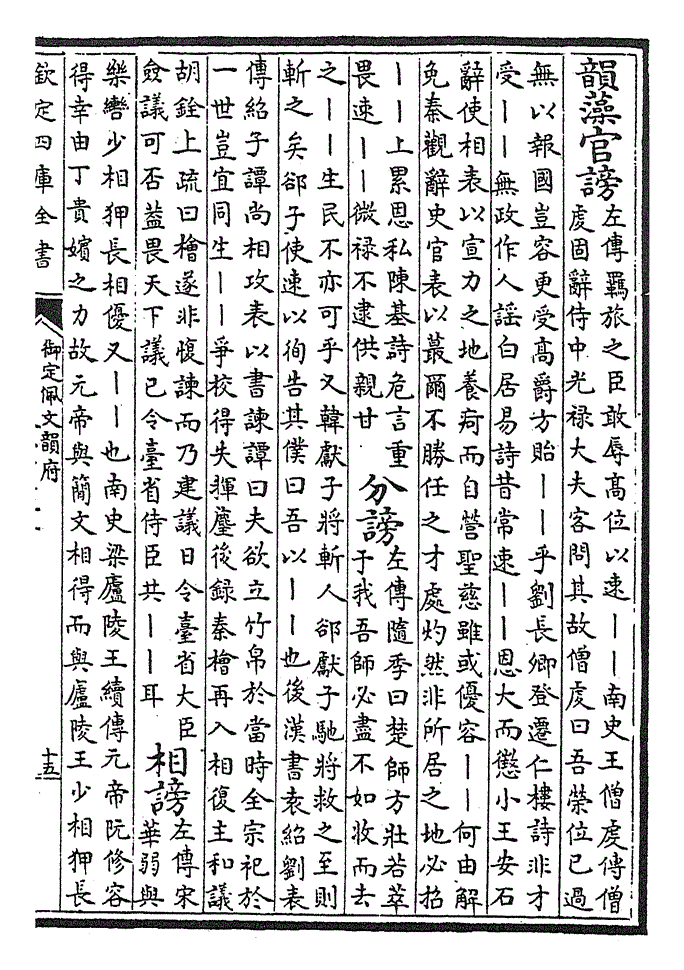 韻藻官謗
左傳羈旅之臣敢辱髙位以速丨丨南史王僧䖍傳僧
䖍固辭侍中光禄大夫客問其故僧䖍曰吾榮位已過
無以報國豈容更受髙爵方貽丨丨乎劉長卿登遷仁樓詩非才
受丨丨無政作人謡白居易詩昔常速丨丨恩大而懲小王安石
辭使相表以宣力之地養疴而自營聖慈雖或優容丨丨何由解
免秦觀辭史官表以蕞爾不勝任之才處灼然非所居之地必招
丨丨上累恩私陳基詩危言重
畏速丨丨微禄不逮供親甘
分謗
左傳隨季曰楚師方壯若萃
于我吾師必盡不如收而去
之丨丨生民不亦可乎又韓獻子將斬人郤獻子馳將救之至則
斬之矣郤子使速以徇告其僕曰吾以丨丨也後漢書袁紹劉表
傳紹子譚尚相攻表以書諫譚曰夫欲立竹帛於當時全宗祀於
一世豈宜同生丨丨爭校得失揮麈後録秦檜再入相復主和議
胡銓上疏曰檜遂非愎諫而乃建議日令臺省大臣
僉議可否葢畏天下議已令臺省侍臣共丨丨耳
相謗
左傳宋
華弱與
樂轡少相狎長相優又丨丨也南史梁廬陵王續傳元帝阮修容
得幸由丁貴嬪之力故元帝與簡文相得而與廬陵王少相狎長
欽定四庫全書
御定佩文韻府
十五